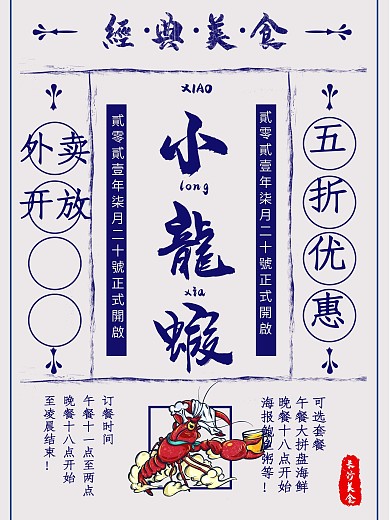 經·典·美·食
XIAO
小
long
龍
xia
蝦
貳零貳壹年柒月二十號正式開啟
貳零貳壹年柒月二十號正式開啟
五折优惠
外卖
开放
可选套餐
午餐大拼盘海鲜
晚餐十八点开始
海报鲍鱼粥等！
订餐时间
午餐十一点至两点
晚餐十八点开始
至凌晨结束！
长沙美食